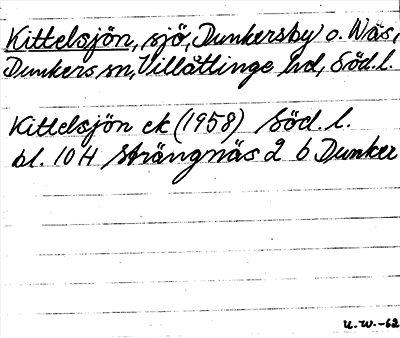 Kittelsjön, sjö, Dunkersby o. Näs,
Dunkers sn, Villåttinge hd, Söd.l.
Kittelsjön ek (1958) Söd. l.
bl. 10H Strängnäs 2 b Dunker
U.W.-62